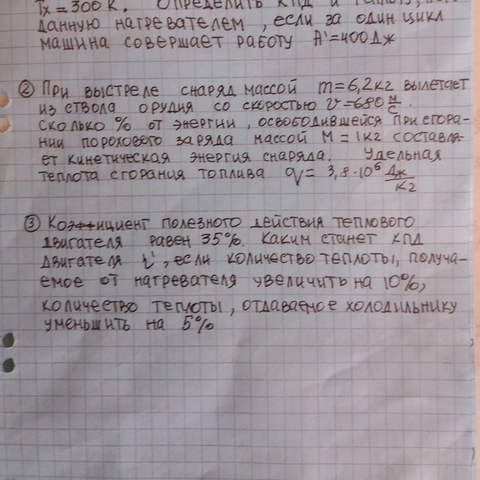 Tx = 300 К. Определить КПД и
данную нагревателем, если за один цикл
машина совершает работу A' = 400 Дж
② При выстреле снаряд массой m = 6,2 кг вылетает
из ствола орудия со скоростью υ = 680 м/с.
Сколько % от энергии, освободившейся при сгора-
нии порохового заряда массой M = 1 кг составля-
ет кинетическая энергия снаряда. Удельная
теплота сгорания топлива q = 3,8·10⁶ Дж/кг
③ Коэффициент полезного действия теплового
двигателя равен 35%. Каким станет КПД
двигателя η', если количество теплоты, получа-
емое от нагревателя увеличить на 10%,
количество теплоты, отдаваемое холодильнику
уменьшить на 5%